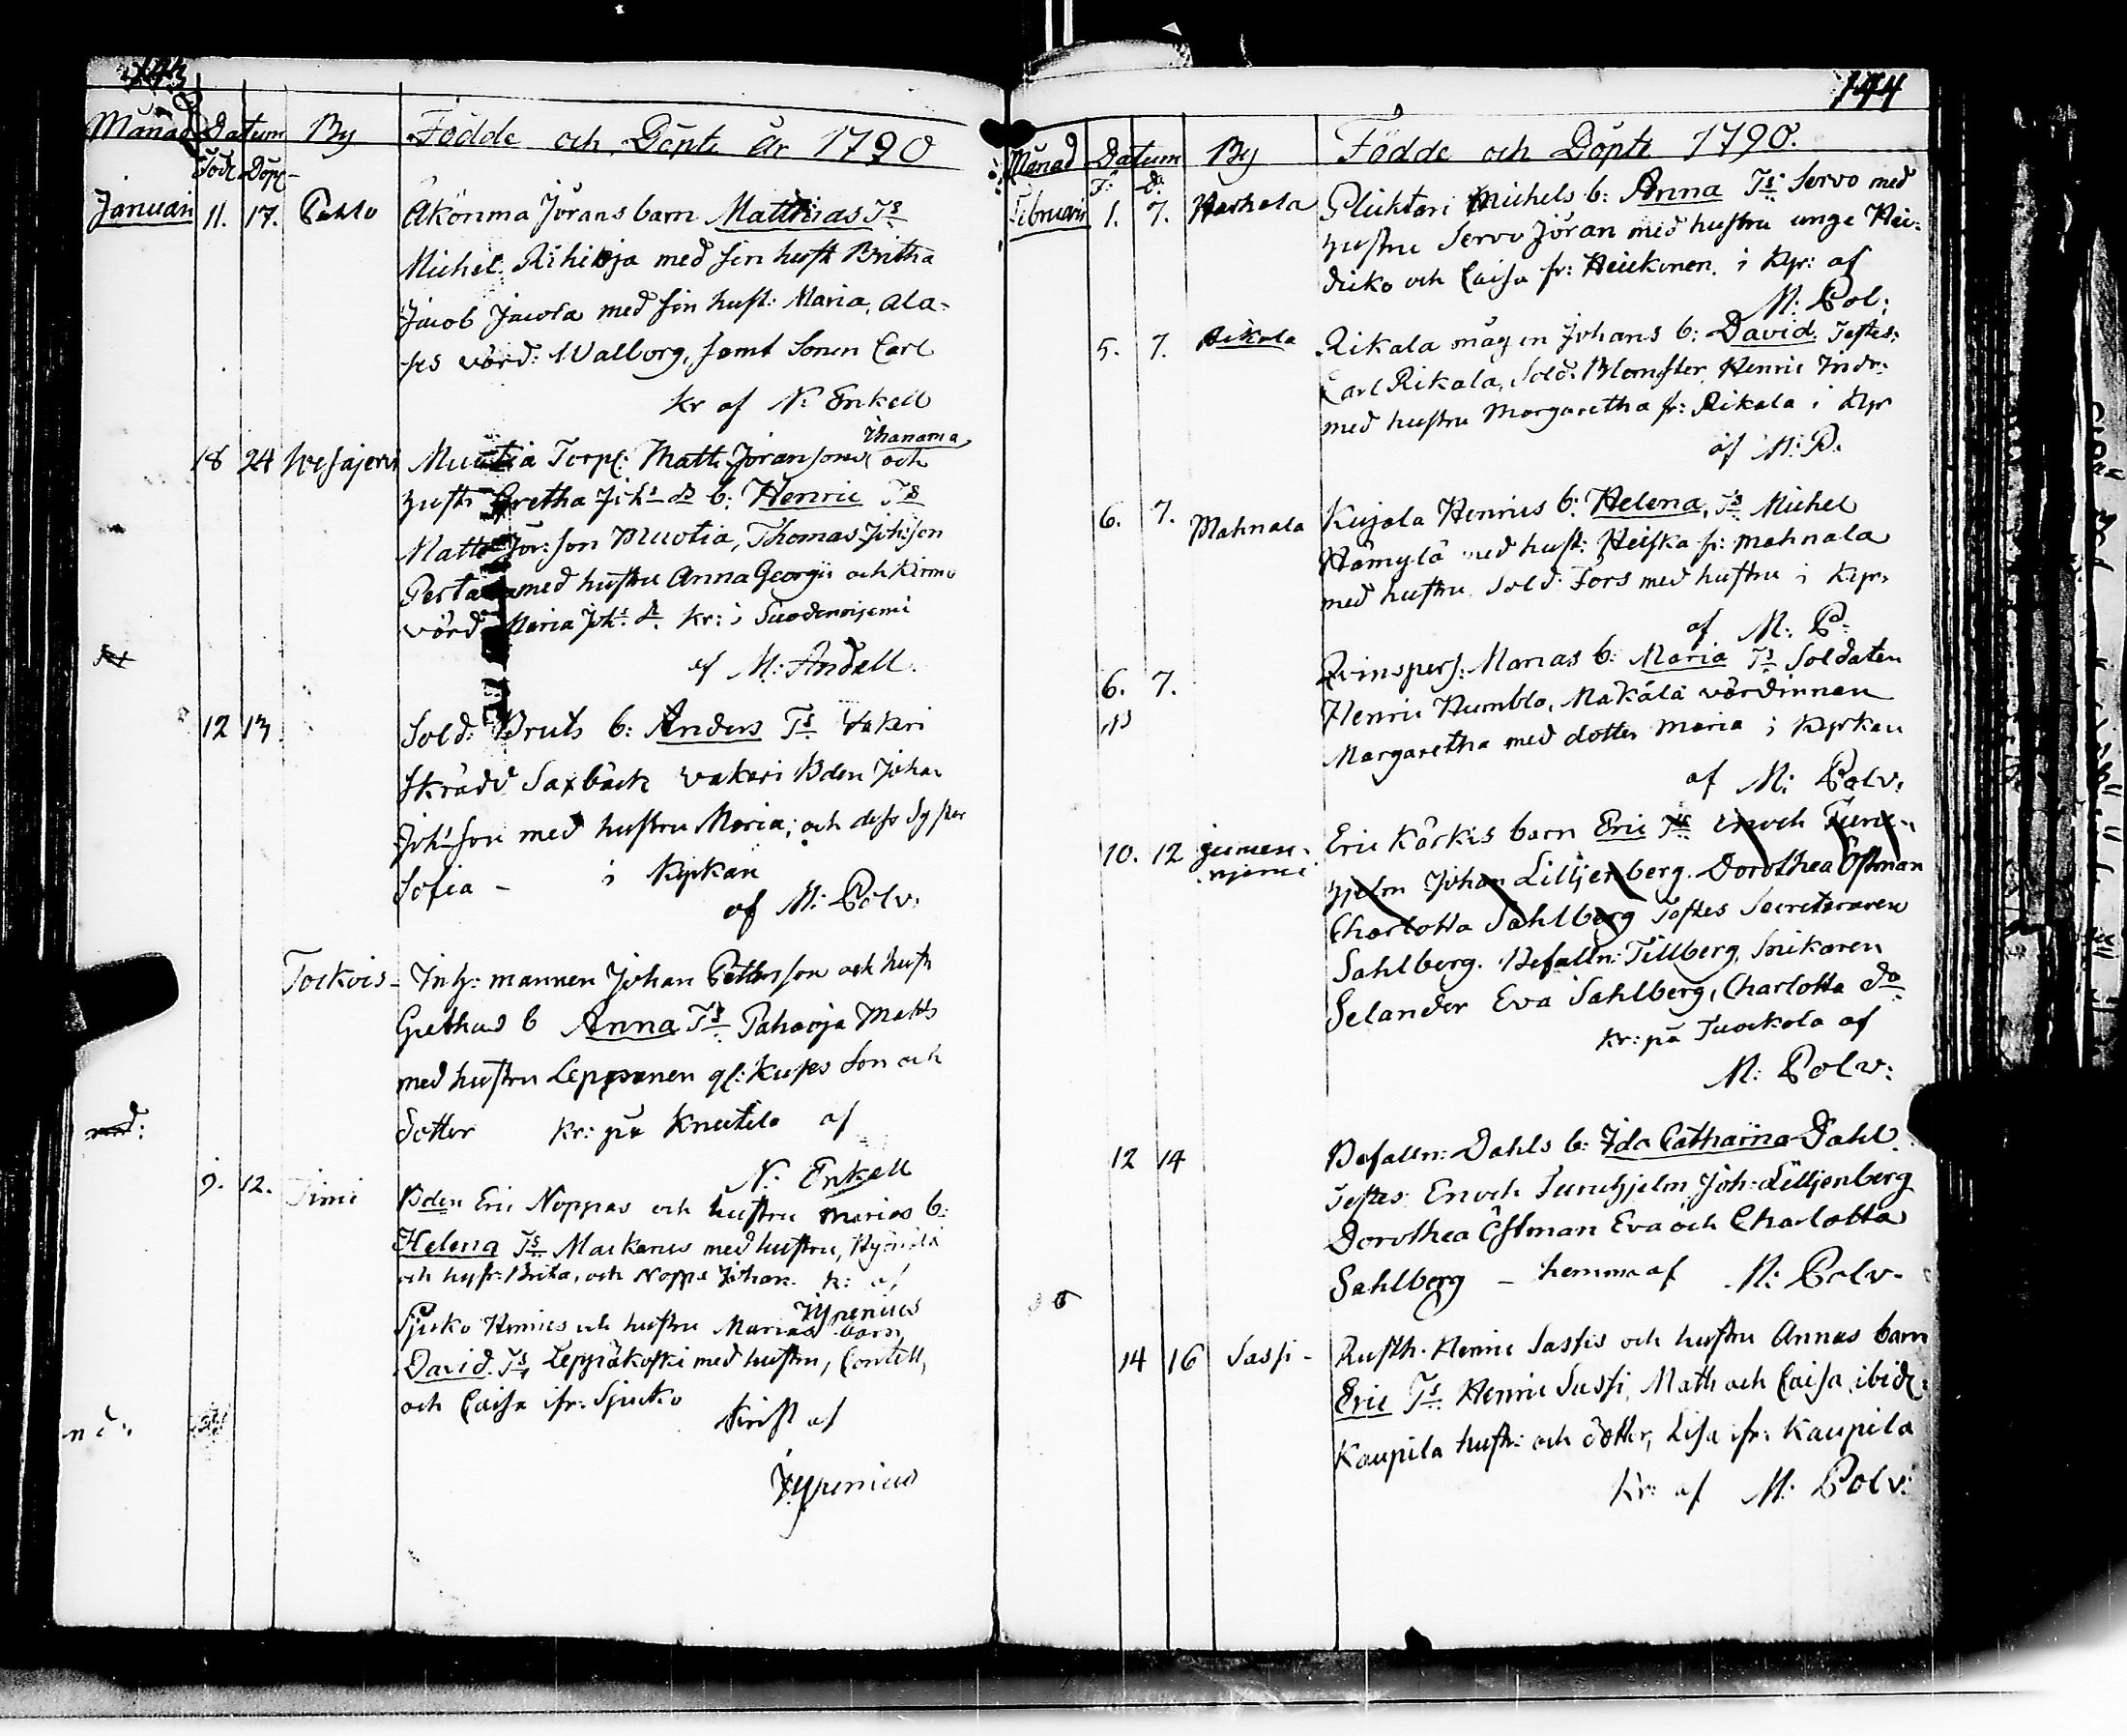 Månad Datum By Födde och Döpte År 1790
Född Döpt
Januari 11. 17. Pahlo Äkönma Jörans barn Matthias Ts
Michel Rihioja med sin hust Britha
Jacob Jacola med sin hust: Maria, Ala-
pes värd: Walborg, samt Sonen Carl
kr af N. Enkell
Ihanama
18 24 Wesajervi Muotia Torp: Matts Joransons och
hustr Gretha Johs dr b: Henric Ts
Matts Jör: son Muotia, Thomas Joh:son
med hustru Anna Georgii och Kirmo
värd Maria Joh: dr. kr: i Suodenniemi
af M: Andell.
12 13. Sold: Bruts b: Anders Ts
Skrädd Saxbäck Wakeri Bden Johan
Joh:son med hustru Maria; och dess Syster
Sofia - i Kyrkan
af M: Polv:
Tockois- Inh: mannen Johan Pettersson och hustr
Grethas b Anna Ts Pahaoja Matts
med hustru Leppänen gl: Kupes Son och
Dotter kr: på Knutila af
N. Enkell
9. 12. Timi Bden Eric Noppas och hustru Marias b:
Helena Ts Mackanus med hustru,
och hustr: Brita, och Noppa Johan. k: af
Henrics och hustru Marias barn
David. Ts Leppäkoski med hustru,
och Caisa ifr: Sjuko Krist af
144
Månad Datum By Födde och Döpte 1790.
F: D.
Februari 1. 7. Harhala Plihtari Michels b: Anna Ts Servo med
hustru Servo Jöran med hustru unge Hei-
duko och Caisa fr: Heickinen. i Kyr: af
M: Pol:
5. 7. Rikala Rikala mågen Johans b: David. Testes:
Carl Rikala, Sold: Blomster, Henric Indr:
med hustru Margaretha fr: Rikala i Kyr
af M: P.
6. 7. Mahnala Kujala Henrics b: Helena, Ts Michel
Hämylä med hust: Heiska fr: Mahnala
med hustru Sold: Fors med hustru i Kyr.
af M: P:
6. 7. Qvinspers: Marias b: Maria Ts Soldaten
Henric Humblo, Makälä värdinnan
Margaretha med dotter Maria i Kyrkan
af M: Polv:
10. 12 Jumes-niemi Eric Kärkis barn Eric Ts Enoch Furu-
hjelm Johan Lilljenberg. Dorothea Östman
Charlotta Sahlberg Testes Secreteraren
Sahlberg. Befalln: Tillberg, Snikaren
Selander Eva Sahlberg, Charlotta do
kr: på Tuockola af
M: Polv:
12 14 Befalln: Dahls b: Ida Catharina Dahl
Testes Enoch Furuhjelm Joh: Lilljenberg
Dorothea Östman Eva och Charlotta
Sahlberg - hemma af M: Polv.
14 16 Sassi - Rusth. Henric Sassis och hustru Annas barn
Eric Ts Henric Sassi, Math och Caisa, ibid:
Kaupila hustr: och dotter, Lisa ifr: Kaupila
kr: af M: Polv: